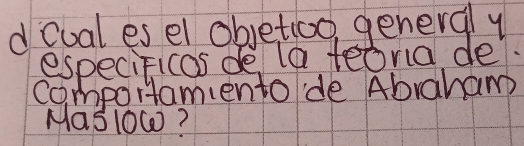 d cual es el objetivo general y
especificos de la teoria de.
comportamiento de Abraham
Maslow?